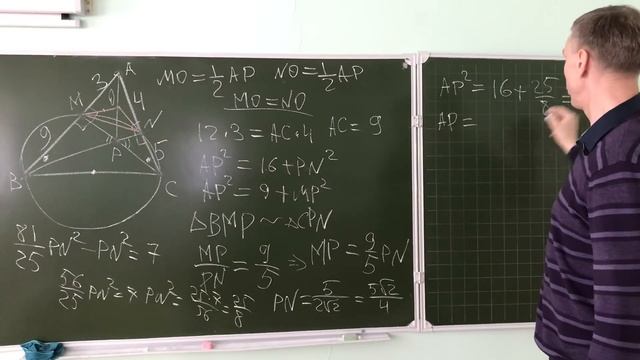 A
3
O
4
M
N
9
P
5
B
C
MO = 1/2 AP NO = 1/2 AP
MO = NO
12·3 = AC·4 AC = 9
AP² = 16 + PN²
AP² = 9 + MP²
△BMP ~ △CPN
MP/PN = 9/5 => MP = 9/5 PN
81/25 PN² - PN² = 7
56/25 PN² = 7 PN² = 25·7/56 = 25/8
PN = 5/2√2 = 5√2/4
AP² = 16 + 25/8 =
AP =